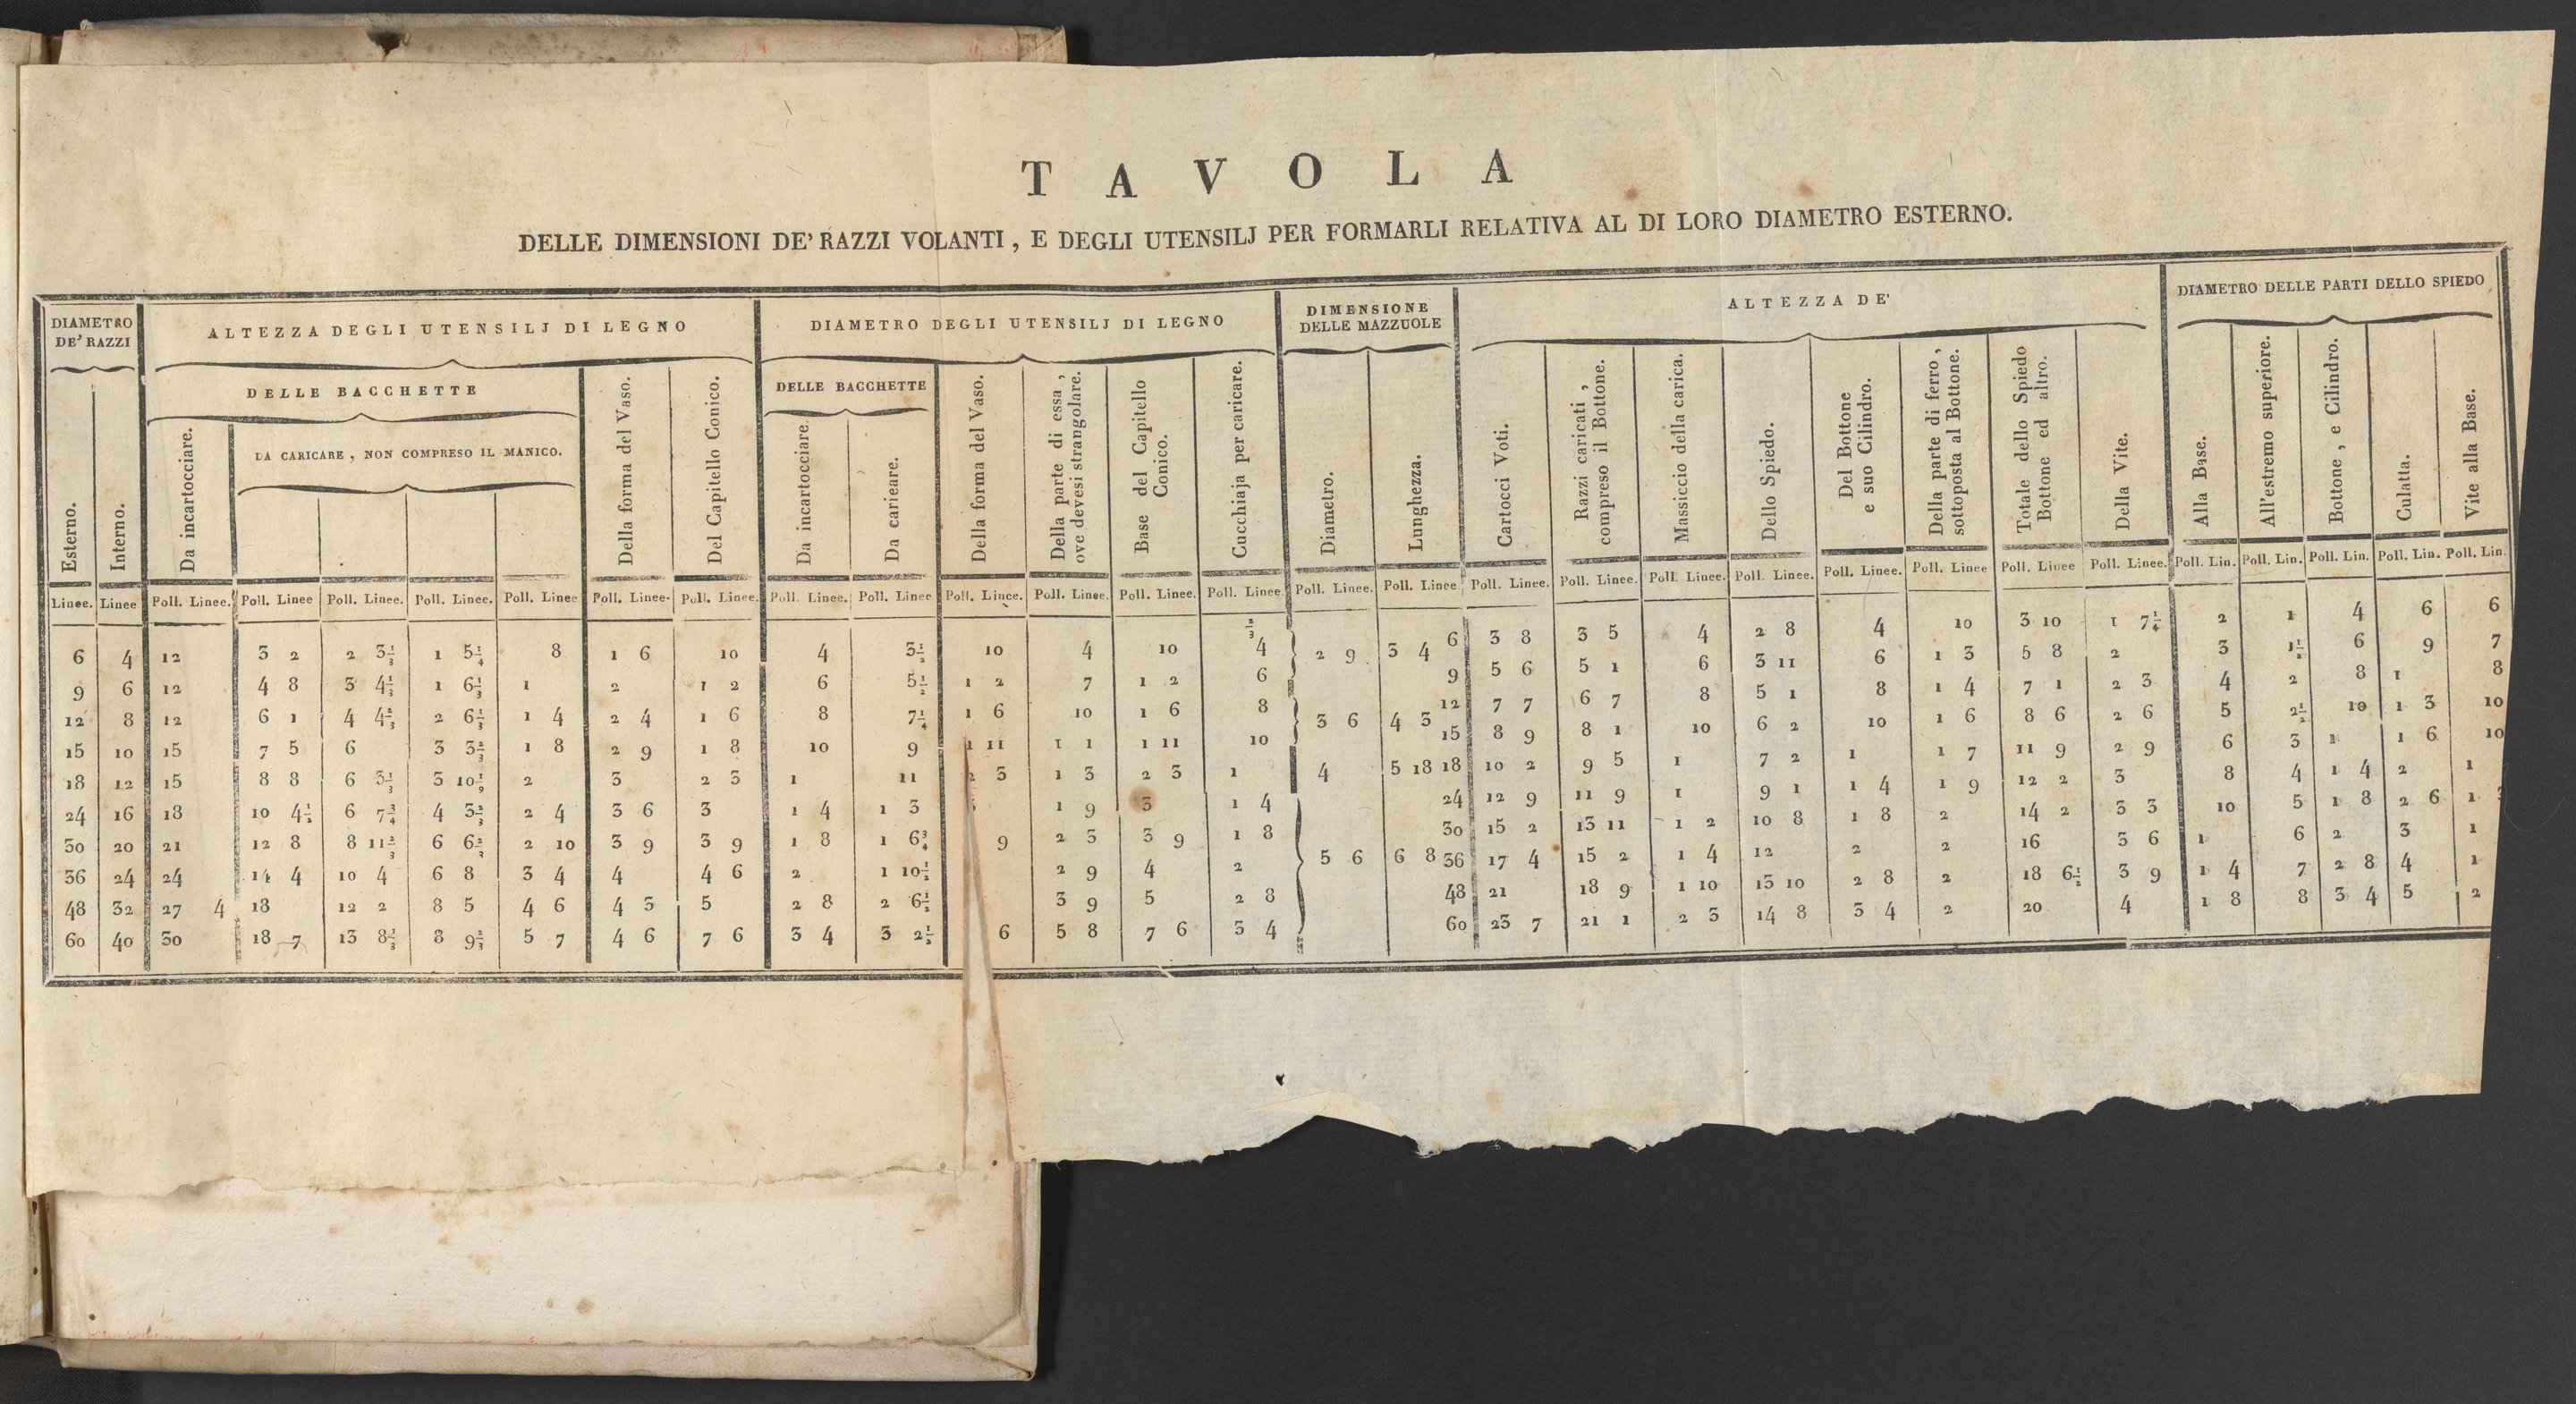 TAVOLA
DELLE DIMENSIONI DE' RAZZI VOLANTI, E DEGLI UTENSILJ PER FORMARLI RELATIVA AL DI LORO DIAMETRO ESTERNO.
DIAMETRO DE' RAZZI
ALTEZZA DEGLI UTENSILJ DI LEGNO
DIAMETRO DEGLI UTENSILJ DI LEGNO
DIMENSIONE DELLE MAZZUOLE
ALTEZZA DE'
DIAMETRO DELLE PARTI DELLO SPIEDO
DELLE BACCHETTE
DELLE BACCHETTE
DA CARICARE, NON COMPRESO IL MANICO.
Esterno.
Interno.
Da incartocciare.
Della forma del Vaso.
Del Capitello Conico.
Da incartocciare.
Da carieare.
Della forma del Vaso.
Della parte di essa, ove devesi strangolare.
Base del Capitello Conico.
Cucchiaja per caricare.
Diametro.
Lunghezza.
Cartocci Voti.
Razzi caricati, compreso il Bottone.
Massiccio della carica.
Dello Spiedo.
Del Bottone e suo Cilindro.
Della parte di ferro, sottoposta al Bottone.
Totale dello Spiedo Bottone ed altro.
Della Vite.
Alla Base.
All'estremo superiore.
Bottone, e Cilindro.
Culatta.
Vite alla Base.
Linee. Linee Poll. Linee. Poll. Linee Poll. Linee. Poll. Linee. Poll. Linee Poll. Linee. Poll. Linee. Poll. Linee. Poll. Linee Poll. Linee. Poll. Linee. Poll. Linee. Poll. Linee. Poll. Linee. Poll. Linee Poll. Linee. Poll. Linee. Poll. Linee. Poll. Linee. Poll. Linee. Poll. Linee Poll. Linee Poll. Linee. Poll. Lin. Poll. Lin. Poll. Lin. Poll. Lin. Poll. Lin.
6 4 12 3 2 2 3 1/3 1 5 1/4 8 1 6 10 4 3 1/2 10 4 10 4 2/3 2 9 3 4 6 3 8 3 5 4 2 8 4 10 3 10 1 7 1/4 2 1 4 6 6
9 6 12 4 8 3 4 1/3 1 6 1/3 1 2 1 2 6 5 1/2 1 2 7 1 2 6 9 5 6 5 1 6 3 11 6 1 3 5 8 2 3 1 1/2 6 9 7
12 8 12 6 1 4 4 2/3 2 6 1/3 1 4 2 4 1 6 8 7 1/4 1 6 10 1 6 8 3 6 4 3 12 7 7 6 7 8 5 1 8 1 4 7 1 2 3 4 2 8 1 8
15 10 15 7 5 6 3 3 2/3 1 8 2 9 1 8 10 9 1 11 1 1 1 11 10 15 8 9 8 1 10 6 2 10 1 6 8 6 2 6 5 2 1/2 10 1 3 10
18 12 15 8 8 6 3 1/3 3 10 1/9 2 3 2 3 1 11 2 3 1 3 2 3 1 4 5 18 18 10 2 9 5 1 7 2 1 1 7 11 9 2 9 6 3 1 1 6 10
24 16 18 10 4 1/2 6 7 3/4 4 3 2/3 2 4 3 6 3 1 4 1 3 1 9 3 1 4 24 12 9 11 9 1 9 1 1 4 1 9 12 2 3 8 4 1 4 2 1
30 20 21 12 8 8 11 2/3 6 6 2/3 2 10 3 9 3 9 1 8 1 6 3/4 9 2 3 3 9 1 8 30 15 2 13 11 1 2 10 8 1 8 2 14 2 3 3 10 5 1 8 2 6 1
36 24 24 14 4 10 4 6 8 3 4 4 4 6 2 1 10 1/2 2 9 4 2 5 6 6 8 36 17 4 15 2 1 4 12 2 2 16 3 6 1 6 2 3 1
48 32 27 4 18 12 2 8 5 4 6 4 3 5 2 8 2 6 1/2 3 9 5 2 8 48 21 18 9 1 10 13 10 2 8 2 18 6 1/2 3 9 1 4 7 2 8 4 1
60 40 30 18 7 13 8 1/3 8 9 2/3 5 7 4 6 7 6 3 4 3 2 1/2 6 5 8 7 6 3 4 60 23 7 21 1 2 3 14 8 3 4 2 20 4 1 8 8 3 4 5 2